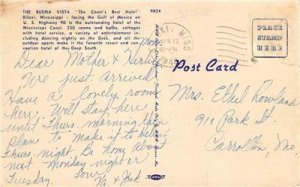 THE BUENA VISTA "The Coast's Best Hotel"
Biloxi, Mississippi - facing the Gulf of Mexico on
U. S. Highway 90 is the outstanding hotel of the
Mississippi Coast. 250 rooms and baths, cottages
with hotel service, a variety of entertainment including
dancing nightly on the Deck, and all the
outdoor sports make it the favorite resort and convention
hotel of the Deep South.
9624
PLACE
STAMP
HERE
Post Card
Mon.
Dear Mother &
We just arrived
Have a lovely room
here. Will stay here
until Thurs. morning
plan to make it to
Thurs. night. Be home about
next Monday night or
Tuesday. Love
Mrs. Ethel Rowland
910 Park St.
Carrollton, Mo